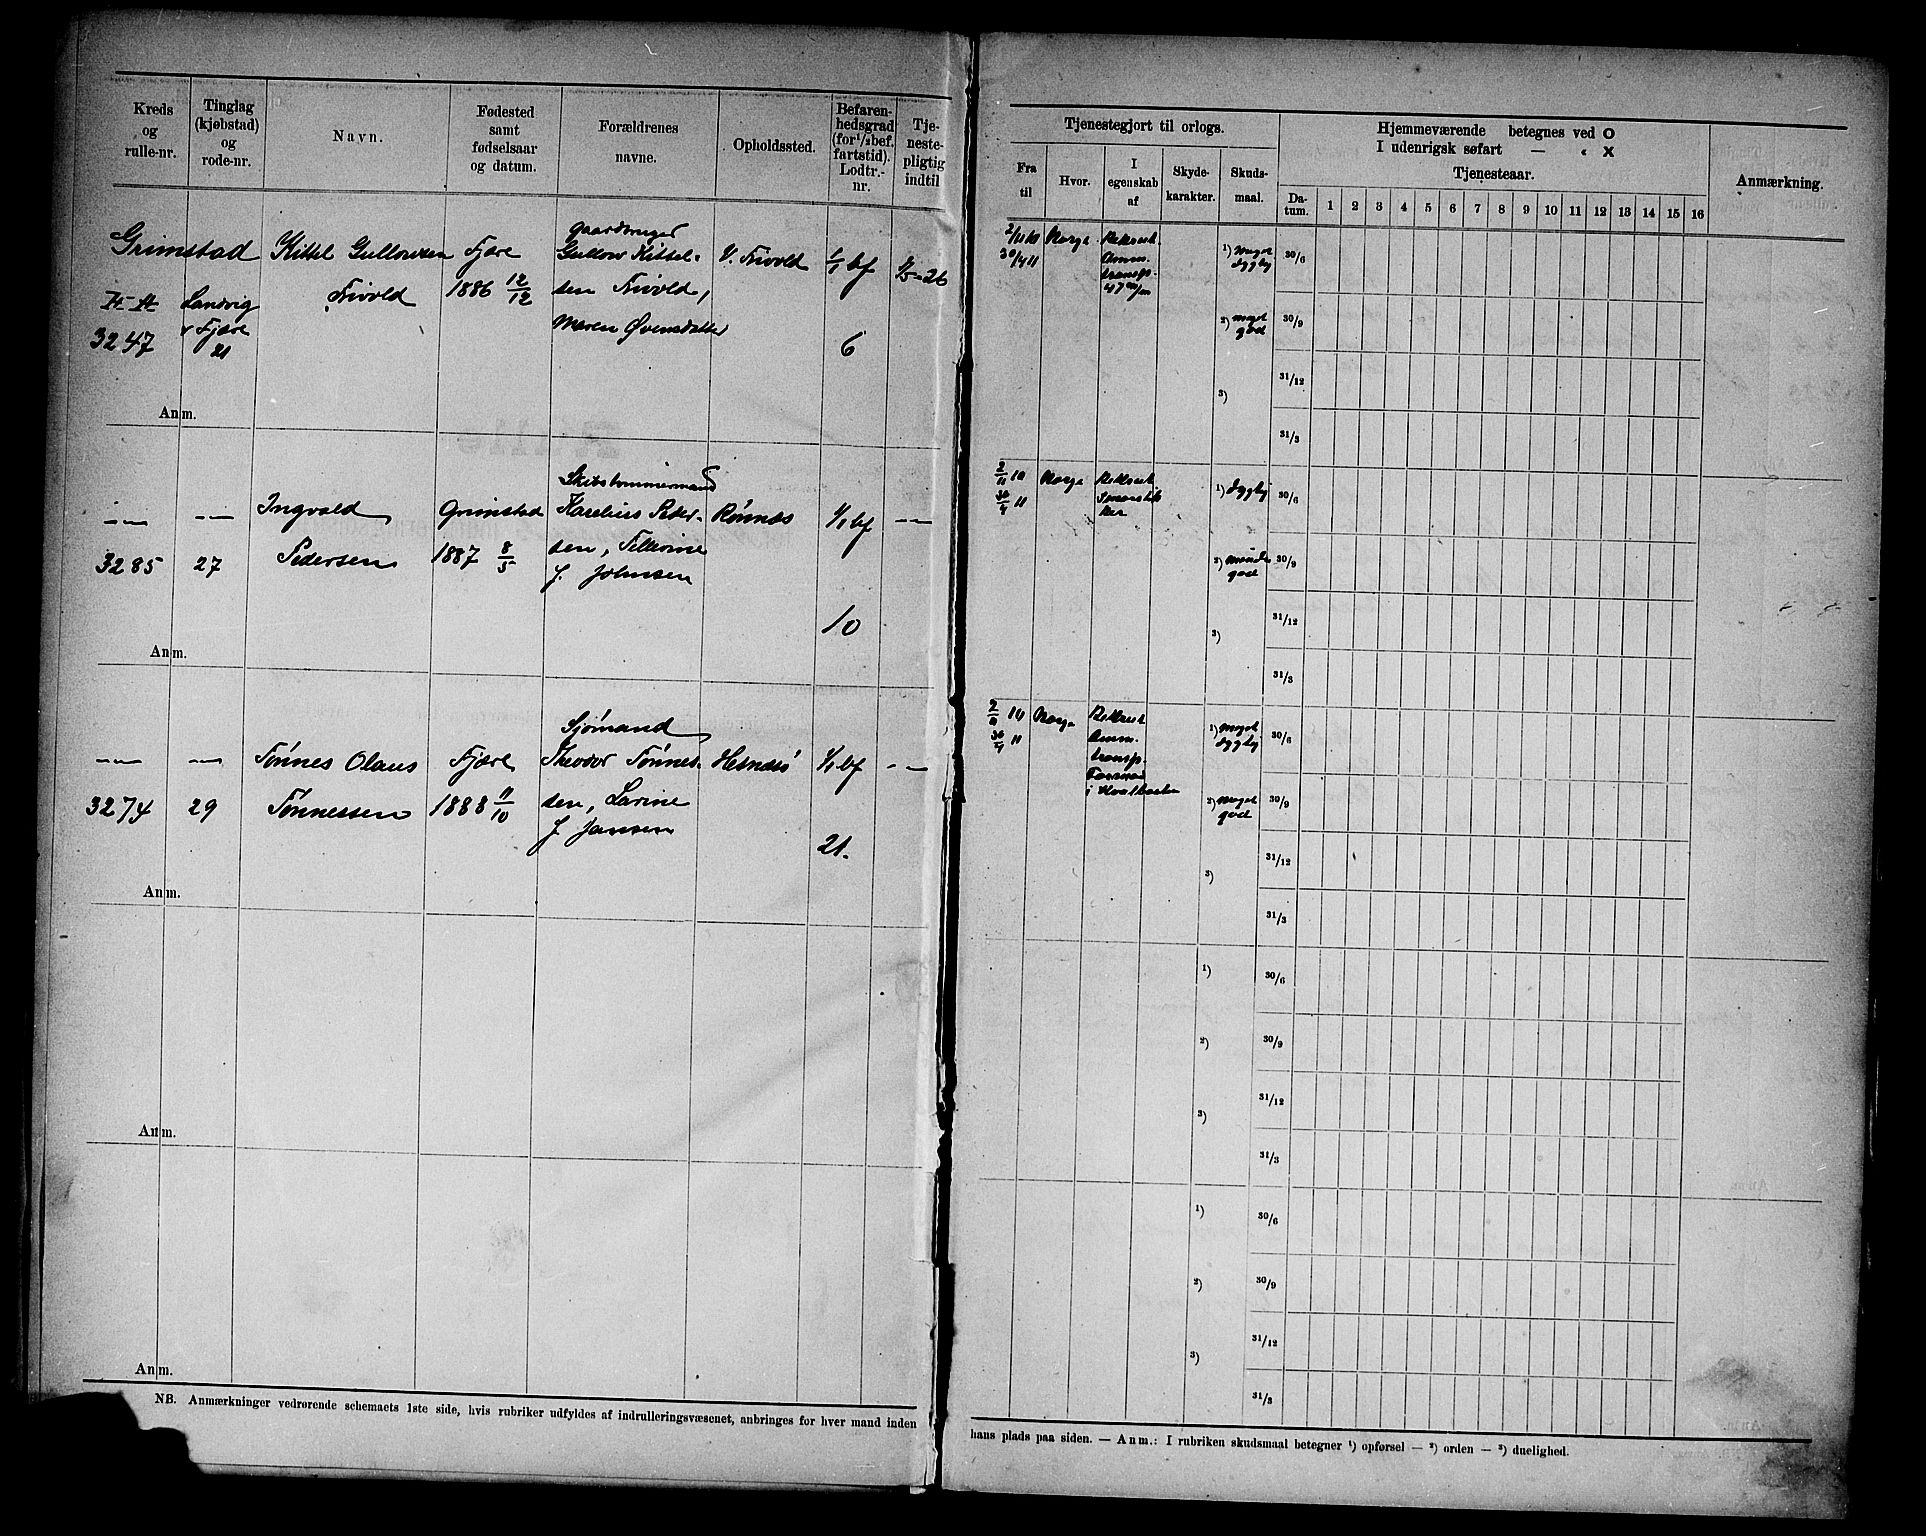 Kreds
og
rulle-nr.
Tinglag
(kjøbstad)
og
rode-nr.
Navn.
Fødested
samt
fødselsaar
og datum.
Forældrenes
navne.
Opholdssted.
Befaren-
hedsgrad
(for ½ bef.
fartstid).
Lodtr.-
nr.
Tje-
neste-
pligtig
indtil
Grimstad
3247
Landvig
Fjære
21
Kittel Gullowsen
Frivold
Fjære
1886 12/12
Gaardbruger
Gullow Kittel-
sen Frivold,
Maren Øvensdatter
V. Frivold
1/1 bf
6
Anm.
3285
27
Ingvald
Pedersen
Grimstad
1887 8/5
Skibstømmermand
Karelius Peder-
sen,
J. Johnsen
Rønnes
1/1 bf
10
Anm.
3274
29
Tønnes Olaus
Tønnessen
Fjære
1888 11/10
Sjømand
Theodor Tønnes-
sen, Larine
J. Jansen
Hesnesø
1/1 bf
21.
Anm.
Anm.
Anm.
NB. Anmærkninger vedrørende schemaets 1ste side, hvis rubriker udfyldes af indrulleringsvæsenet, anbringes for hver mand inden
Tjenestegjort til orlogs.
Fra
til
Hvor.
I
egenskab
af
Skyde-
karakter.
Skuds-
maal.
Hjemmeværende betegnes ved O
I udenrigsk søfart — " X
Tjenesteaar.
Da-
tum.
1 2 3 4 5 6 7 8 9 10 11 12 13 14 15 16
Anmærkning.
2/11 10
30/4 11
Norge
Rekrut
Amm.
transp.
47 m/m
1) Meget
dygtig
2) meget
god
3)
30/6
30/9
31/12
31/3
2/11 10
30/4 11
Norge
Rekrut
1) dygtig
2)
god
3)
30/6
30/9
31/12
31/3
2/11 10
30/4 11
Norge
Rekrut
Amm.
transp.
1) meget
dygtig
2) meget
god
3)
30/6
30/9
31/12
31/3
1)
2)
3)
30/6
30/9
31/12
31/3
1)
2)
3)
30/6
30/9
31/12
31/3
hans plads paa siden. — Anm.: I rubriken skudsmaal betegner ¹) opførsel — ²) orden — ³) duelighed.